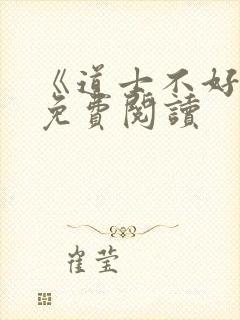 《道士不好
免費閱讀
崔莹